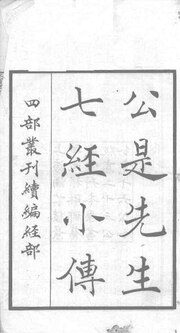 公是先生
七經小傳
四部叢刊續編經部